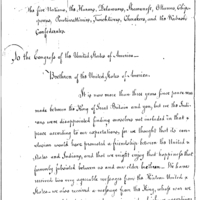 The five Nations, the Hurons, Delawares, Shawanees, Ottawas, Chip-
pewas, Powtewattimies, Twichtwees, Cherokees, and the Wabash
Confederates.
To the Congress of the United States of America—
Brethren of the United States of America.
It is now more than three years since peace was
made between the King of Great Britain and you, but we the Indi-
ans were disappointed finding ourselves not included in that
peace according to our expectations, for we thought that its con-
clusion would have promoted a friendship between the United
States and Indians, and that we might enjoy that happiness that
formerly subsisted between us and our elder brethren. We have
received two very agreeable messages from the thirteen United
States. We also received a message from the King, whose war we